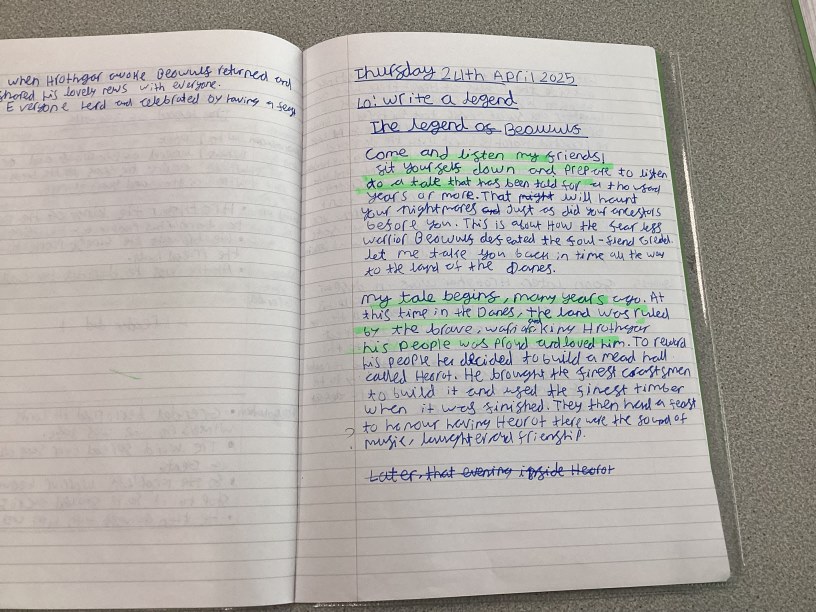 when Hrothgar awoke Beowulf returned and
shared his lovely news with everyone.
Everyone herd and celebrated by having a feast
Thursday 24th April 2025
Lo: Write a legend
The legend of Beowulf
Come and listen my friends,
sit yourself down and prepare to listen
to a tale that has been told for a thousand
years or more. That might will haunt
your nightmares and Just as did your ancestors
before you. This is about How the fearless
warrior Beowulf defeated the foul-fiend Grendel.
let me take you back in time all the way
to the land of the Danes.
My tale begins, many years ago. At
this time in the Danes, the land was ruled
by the brave, warrior king Hrothgar
his people was proud and loved him. To reward
his people he decided to build a mead hall
called Heorot. He brought the finest craftsmen
to build it and used the finest timber
when it was finished. They then held a feast
to honour having Heorot there were the sound of
? music, laughter and friendship.
Later, that evening inside Heorot